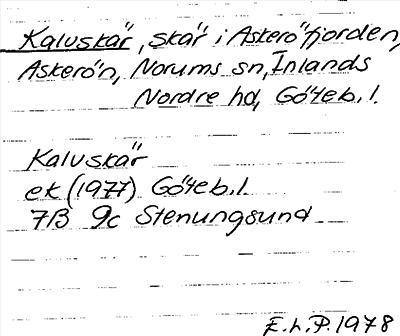 Kaluskär, skär i Askeröfjorden,
Askerön, Norums sn, Inlands
Nordre hd, Göteb. l.
Kaluskär
ek (1977) Göteb. l.
7B 9c Stenungsund
E.L.P. 1978